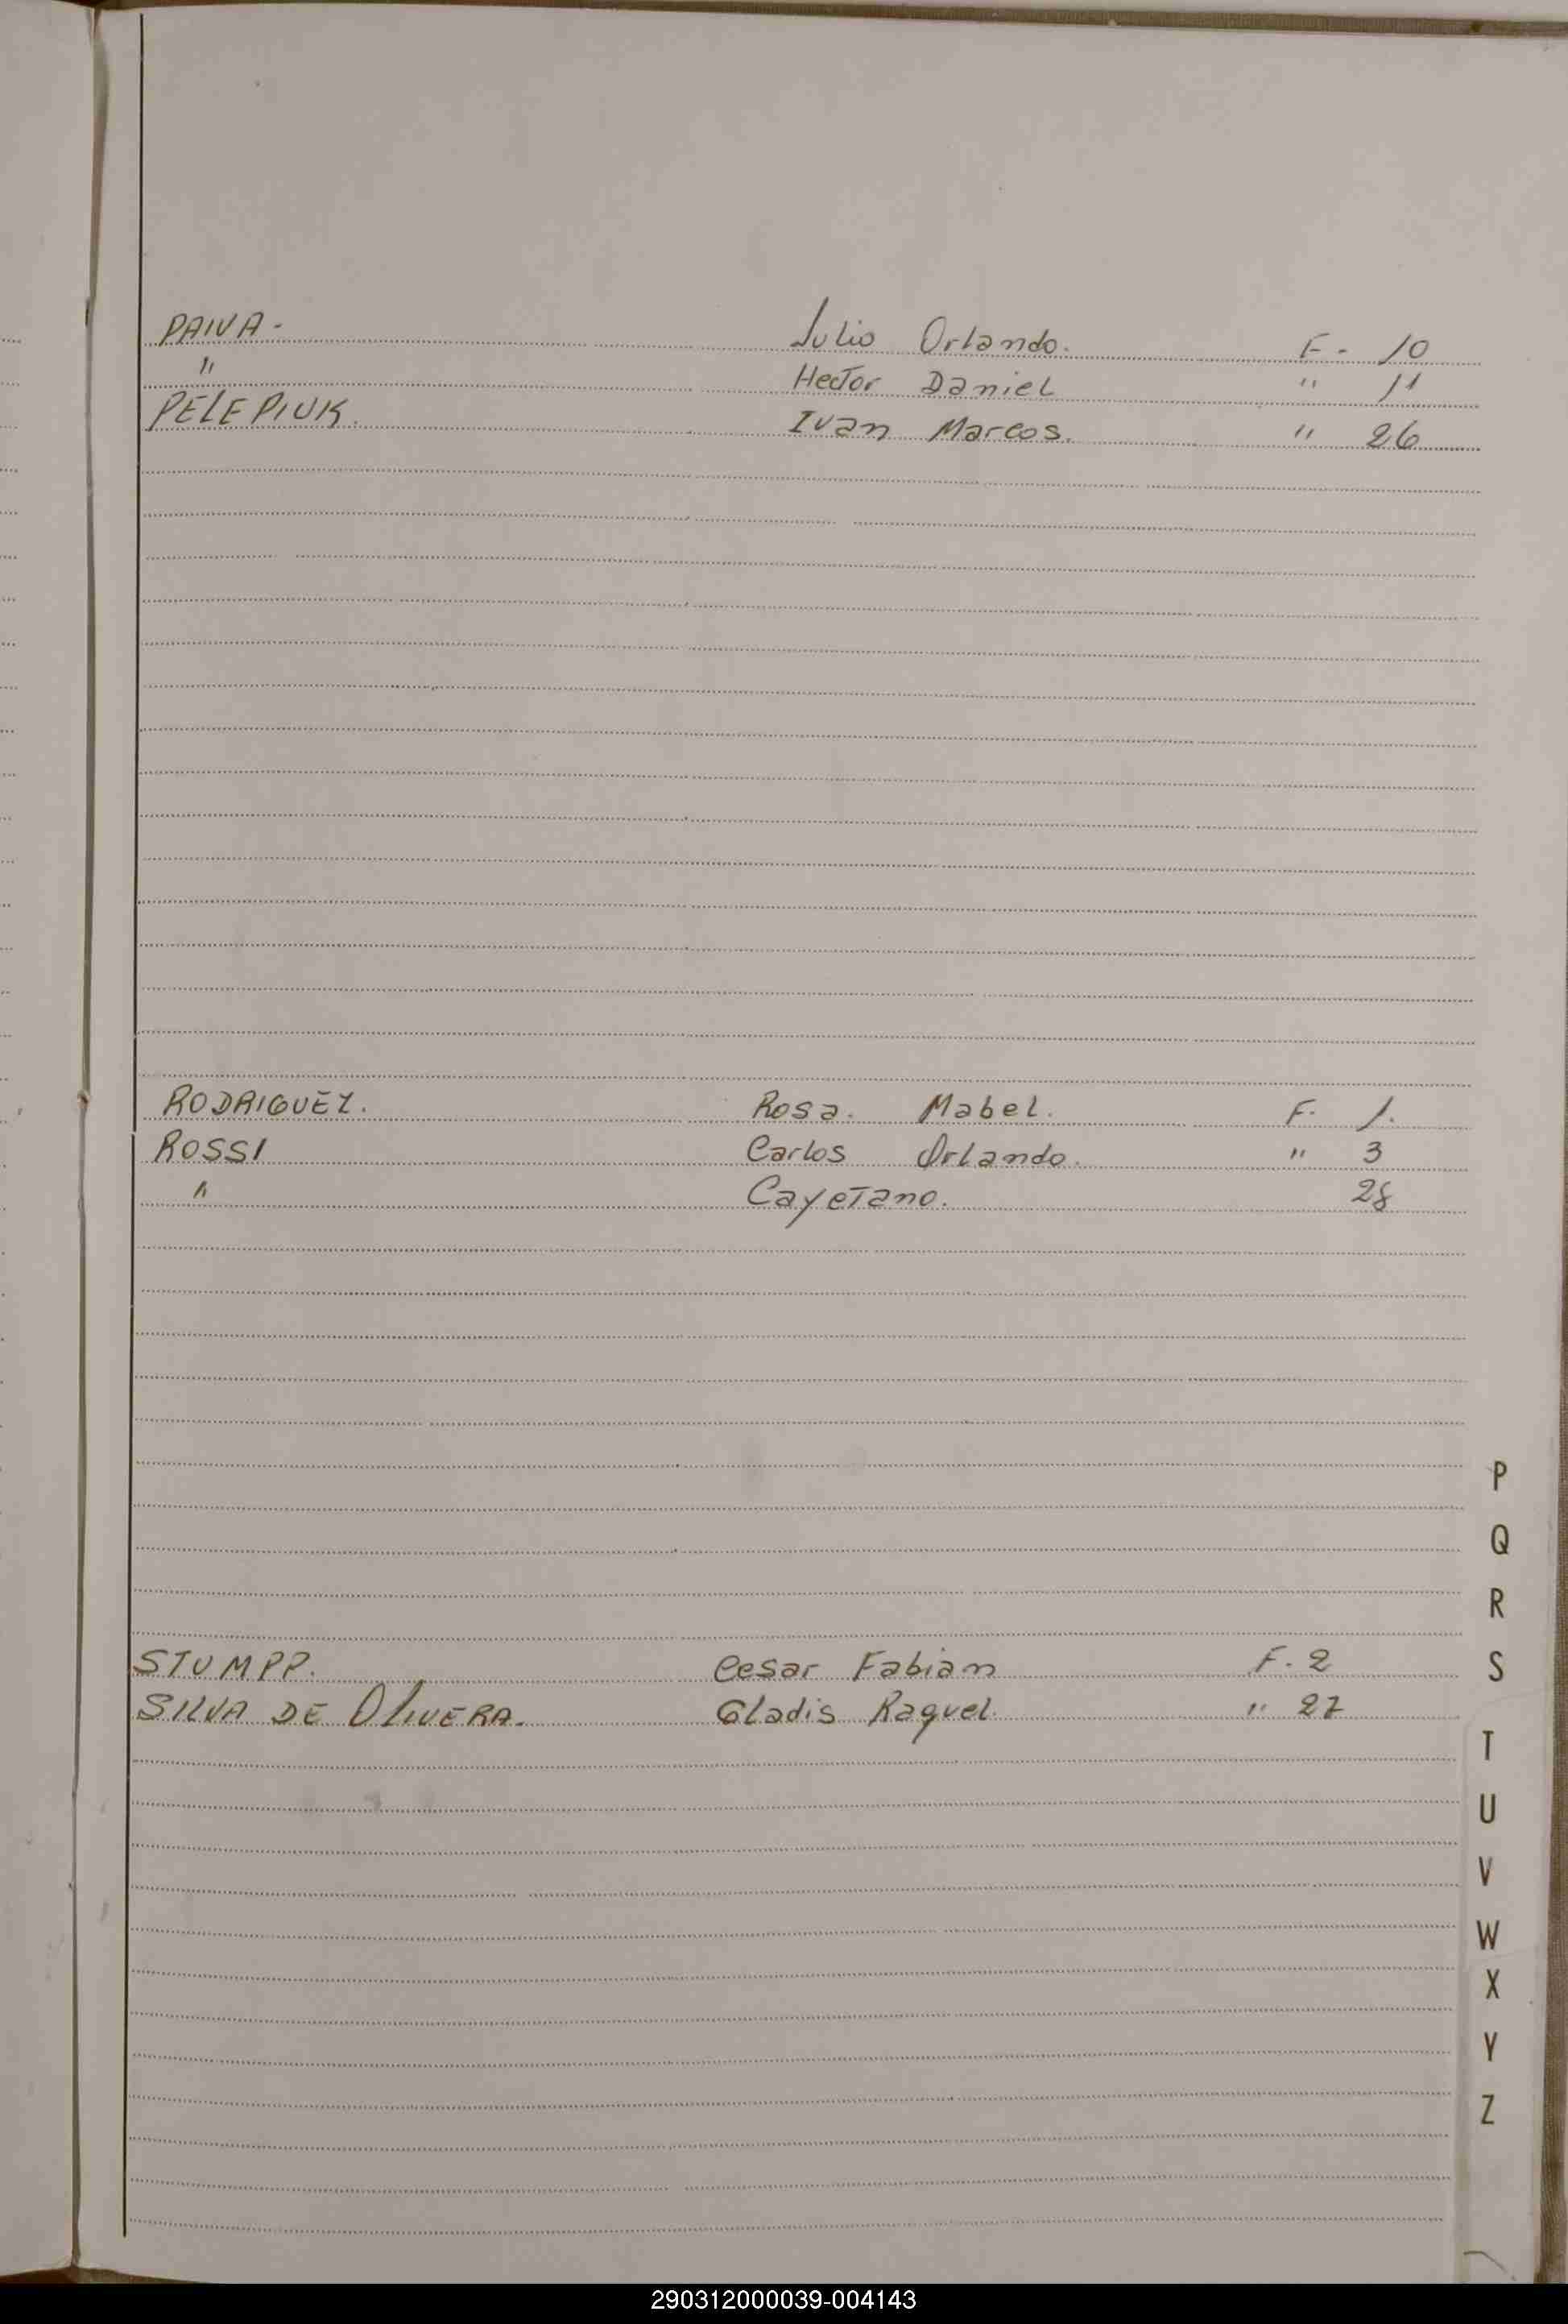 PAIVA - Julio Orlando. F - 10
" Hector Daniel " 11
PELEPIUK. Ivan Marcos. " 26
RODRIGUEZ. Rosa. Mabel. F. 1.
ROSSI Carlos Orlando. " 3
" Cayetano. 28
P
Q
R
STUMPP. Cesar Fabian F. 2
S
SILVA DE OLIVERA. Gladis Raquel. " 27
T
U
V
W
X
Y
Z
290312000039-004143